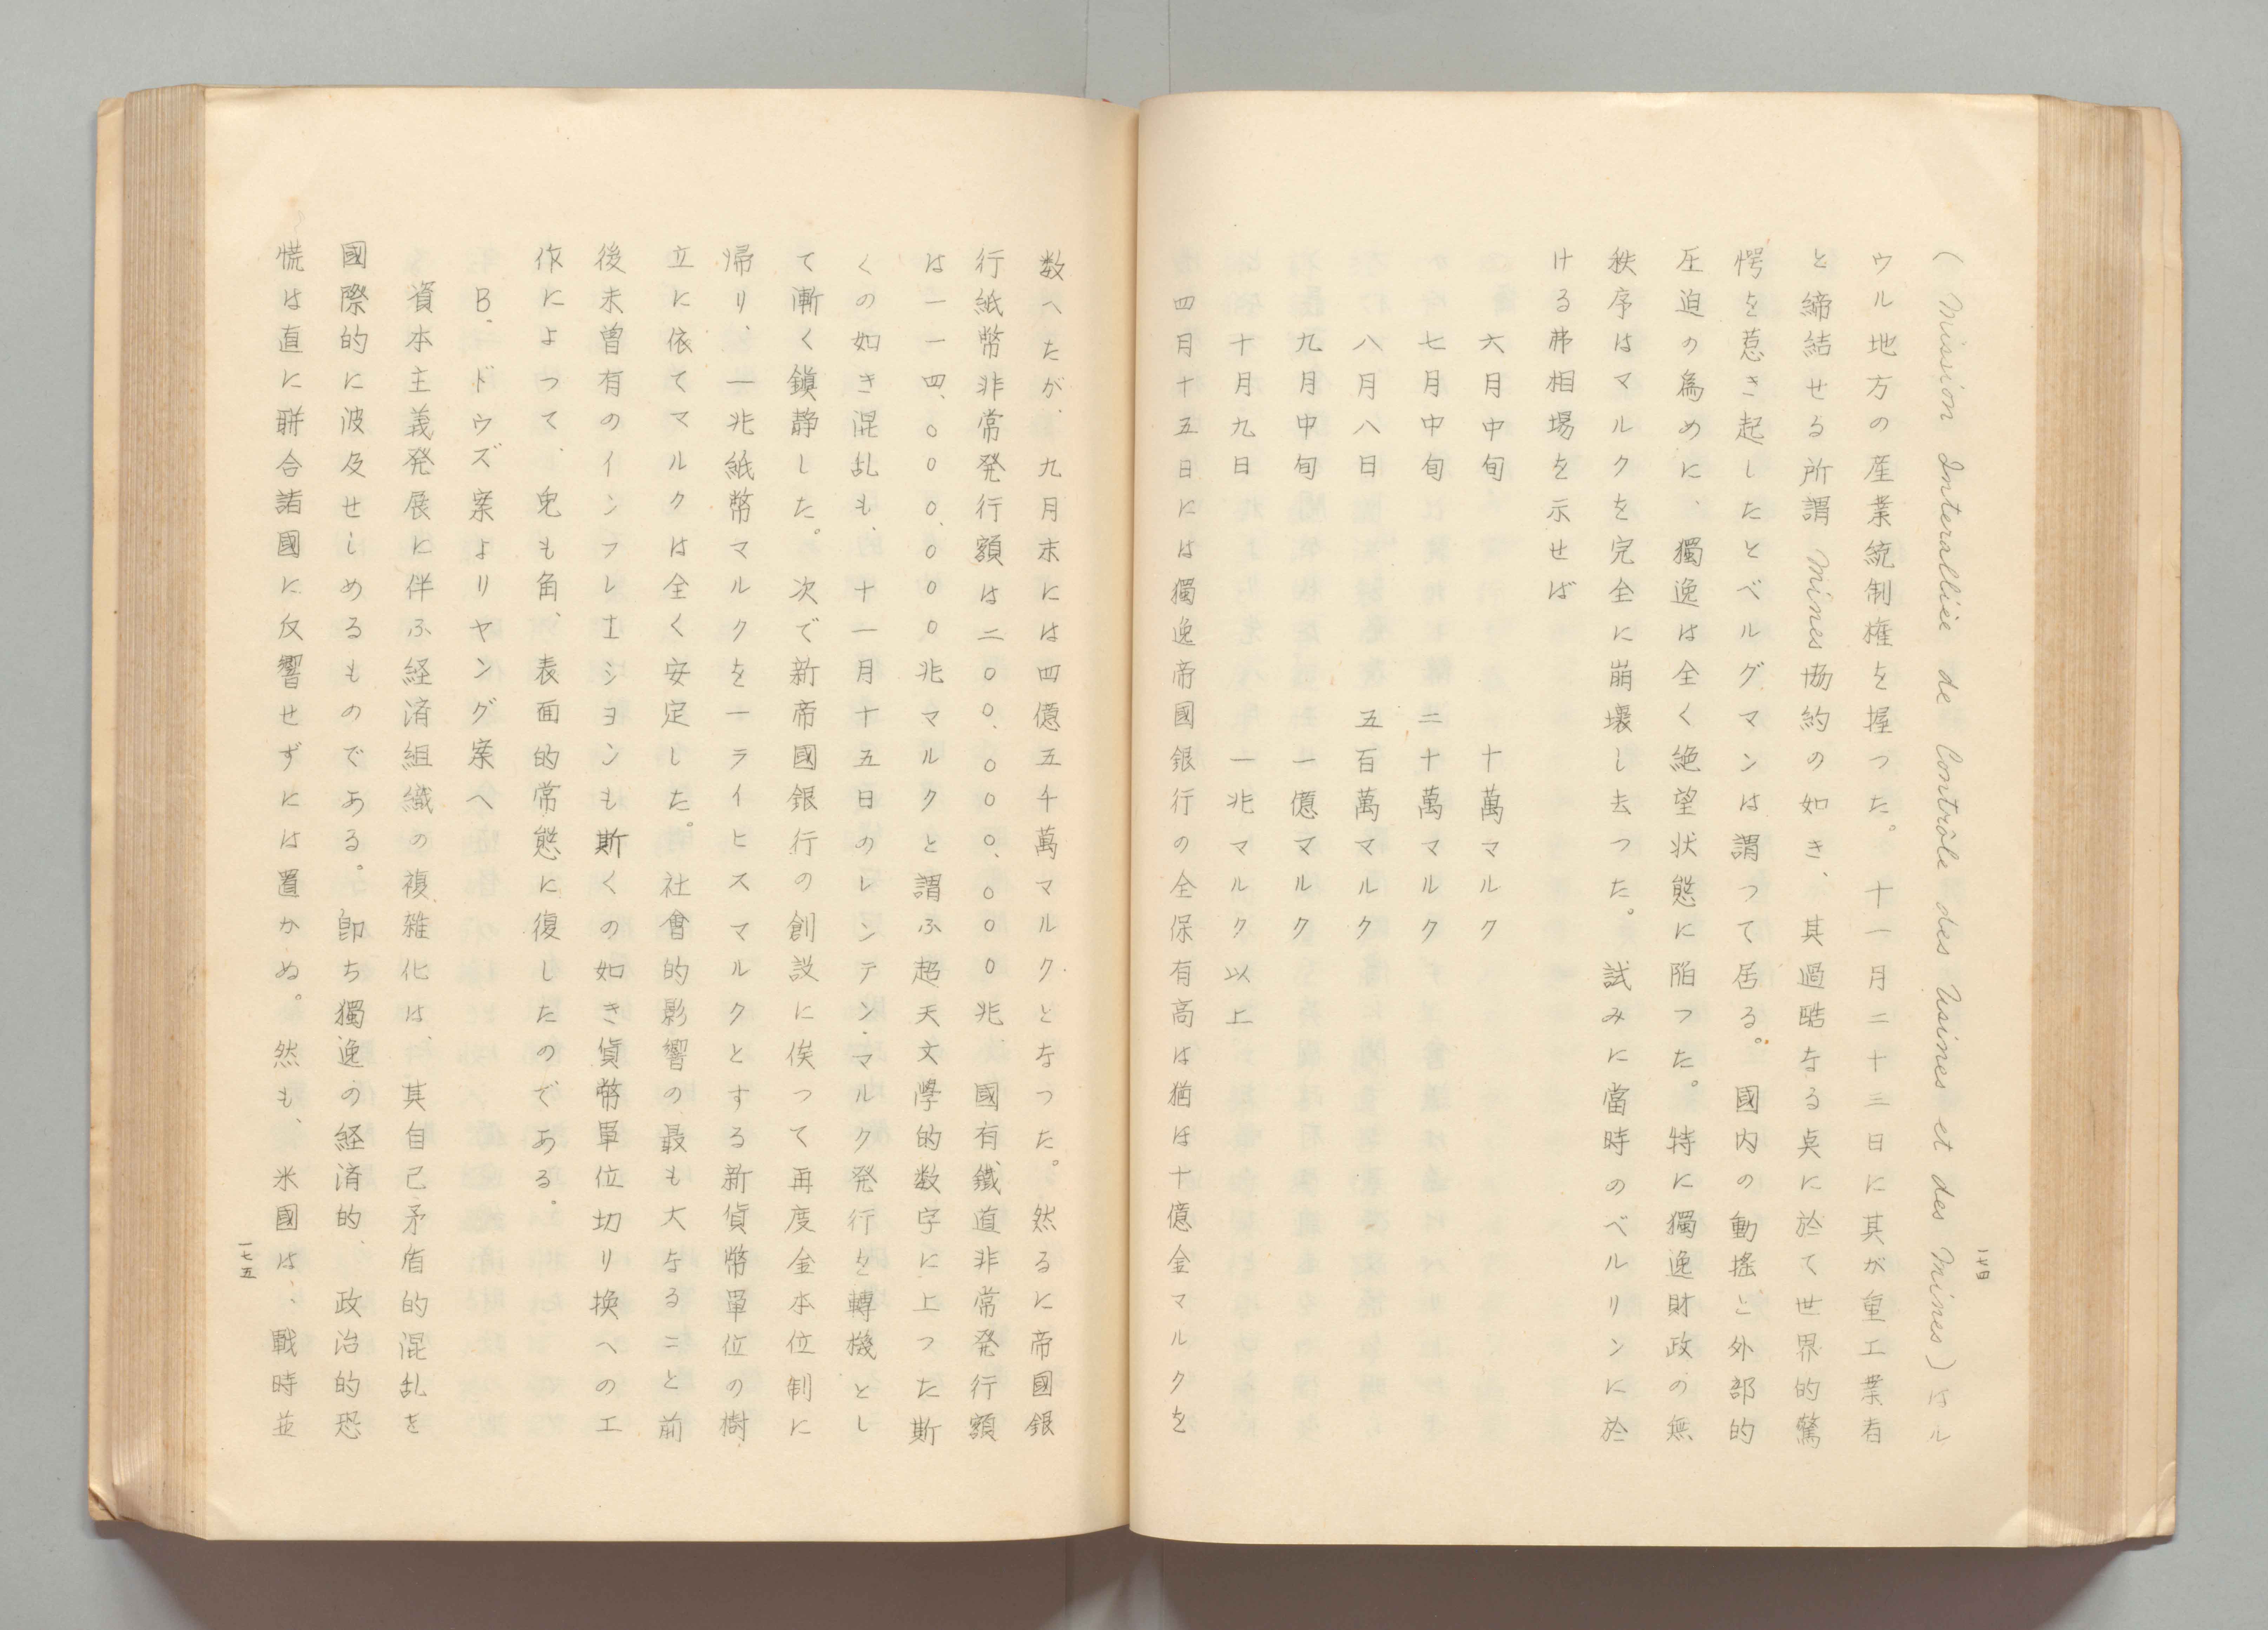 一七四
(Mission Interalliée de Contrôle des Usines et des Mines)はル
ウル地方の産業統制権を握つた。十一月二十三日に其が重工業者
と締結せる所謂Mines協約の如き、其過酷なる奌に於て世界的驚
愕を惹き起したとベルグマンは謂つて居る。國内の動搖と外部的
圧迫の爲めに、獨逸は全く絶望状態に陥つた。特に獨逸財政の無
秩序はマルクを完全に崩壊し去つた。試みに當時のベルリンに於
ける弗相場を示せば
六月中旬 十萬マルク
七月中旬 二十萬マルク
八月八日 五百萬マルク
九月中旬 一億マルク
十月九日 一兆マルク以上
四月十五日には獨逸帝國銀行の全保有高は猶ほ十億金マルクを
数へたが、九月末には四億五千萬マルクとなつた。然るに帝國銀
行紙幣非常発行額は二〇〇、〇〇〇、〇〇〇兆、國有鐵道非常発行額
は一一四、〇〇〇、〇〇〇兆マルクと謂ふ超天文學的数字に上つた斯
くの如き混乱も、十一月十五日のレンテン・マルク発行を轉機とし
て漸く鎭静した。次で新帝國銀行の創設に俟つて再度金本位制に
帰り、一兆紙幣マルクを一ライヒスマルクとする新貨幣單位の樹
立に依てマルクは全く安定した。社會的影響の最も大なること前
後未曽有のインフレエシヨンも斯くの如き貨幣單位切り換へのエ
作によつて、兎も角、表面的常態に復したのである。
B、ドウズ案よりヤング案へ
資本主義発展に伴ふ経済組織の複雑化は、其自己矛盾的混乱を
國際的に波及せしめるものである。卽ち獨逸の経済的、政治的恐
慌は直に聯合諸國に反響せずには置かぬ。然も、米國は、戰時並
一七五